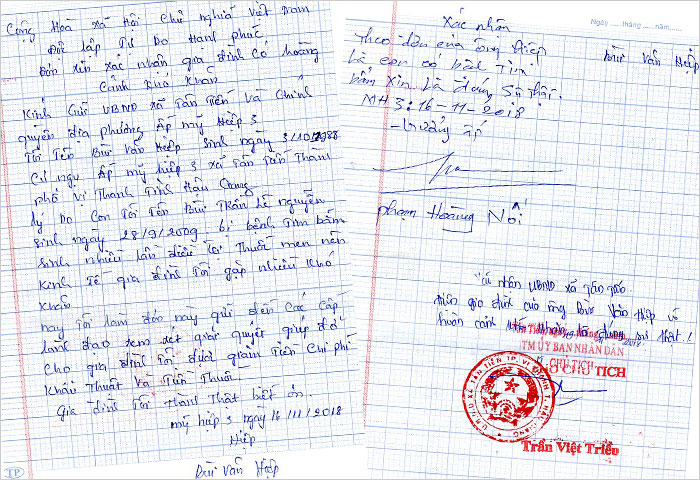 Cộng Hoà Xã Hội Chủ nghĩa Việt Nam
Độc lập Tự Do Hạnh phúc.
Đơn xin xác nhận gia đình có hoàng
Cảnh Khó Khăn
Kính Gửi UBND xã Tân Tiến và Chính
quyền địa phương ấp mỹ Hiệp 3
Tôi Tên Bùi Văn Hiệp Sinh ngày
Cư ngụ ấp mỹ hiệp 3 xã Tân Tiến Thành
phố Vị Thanh Tỉnh Hậu Giang
lý Do Con Tôi Tên Bùi Trần Lê nguyên
Sinh ngày 28/9/2009 bị bệnh Tim bẩm
Sinh nhiều lần điều Trị Thuốc men nên
Kinh Tế gia đình Tôi gặp nhiều Khó
Khăn
nay Tôi làm đơn này gửi đến Các Cấp
lãnh đạo xem xét giải quyết giúp đỡ
Cho gia đình Tôi được giảm Tiền Chi phí
Khẩu Thuật và Tiền Thuốc.
Gia đình Tôi Thành Thật biết ơn.
mỹ hiệp 3 ngày 16/11/2018
Hiệp
Bùi Văn Hiệp
TP
Ngày ..... tháng ..... năm.......
Xác nhận
Theo đơn của ông Hiệp
Bùi Văn Hiệp
Là con có bệnh Tim
bẩm Xin. Là đúng Sự Thật.
MH3: 16-11-2018
- trưởng ấp
phạm Hoàng Nói
Xác nhận UBND xã
gia đình của ông Bùi Văn Hiệp
hoàn cảnh khó khăn là đúng sự thật!
TM ỦY BAN NHÂN DÂN
CHỦ TỊCH
PHÓ CHỦ TỊCH
Trần Việt Triều